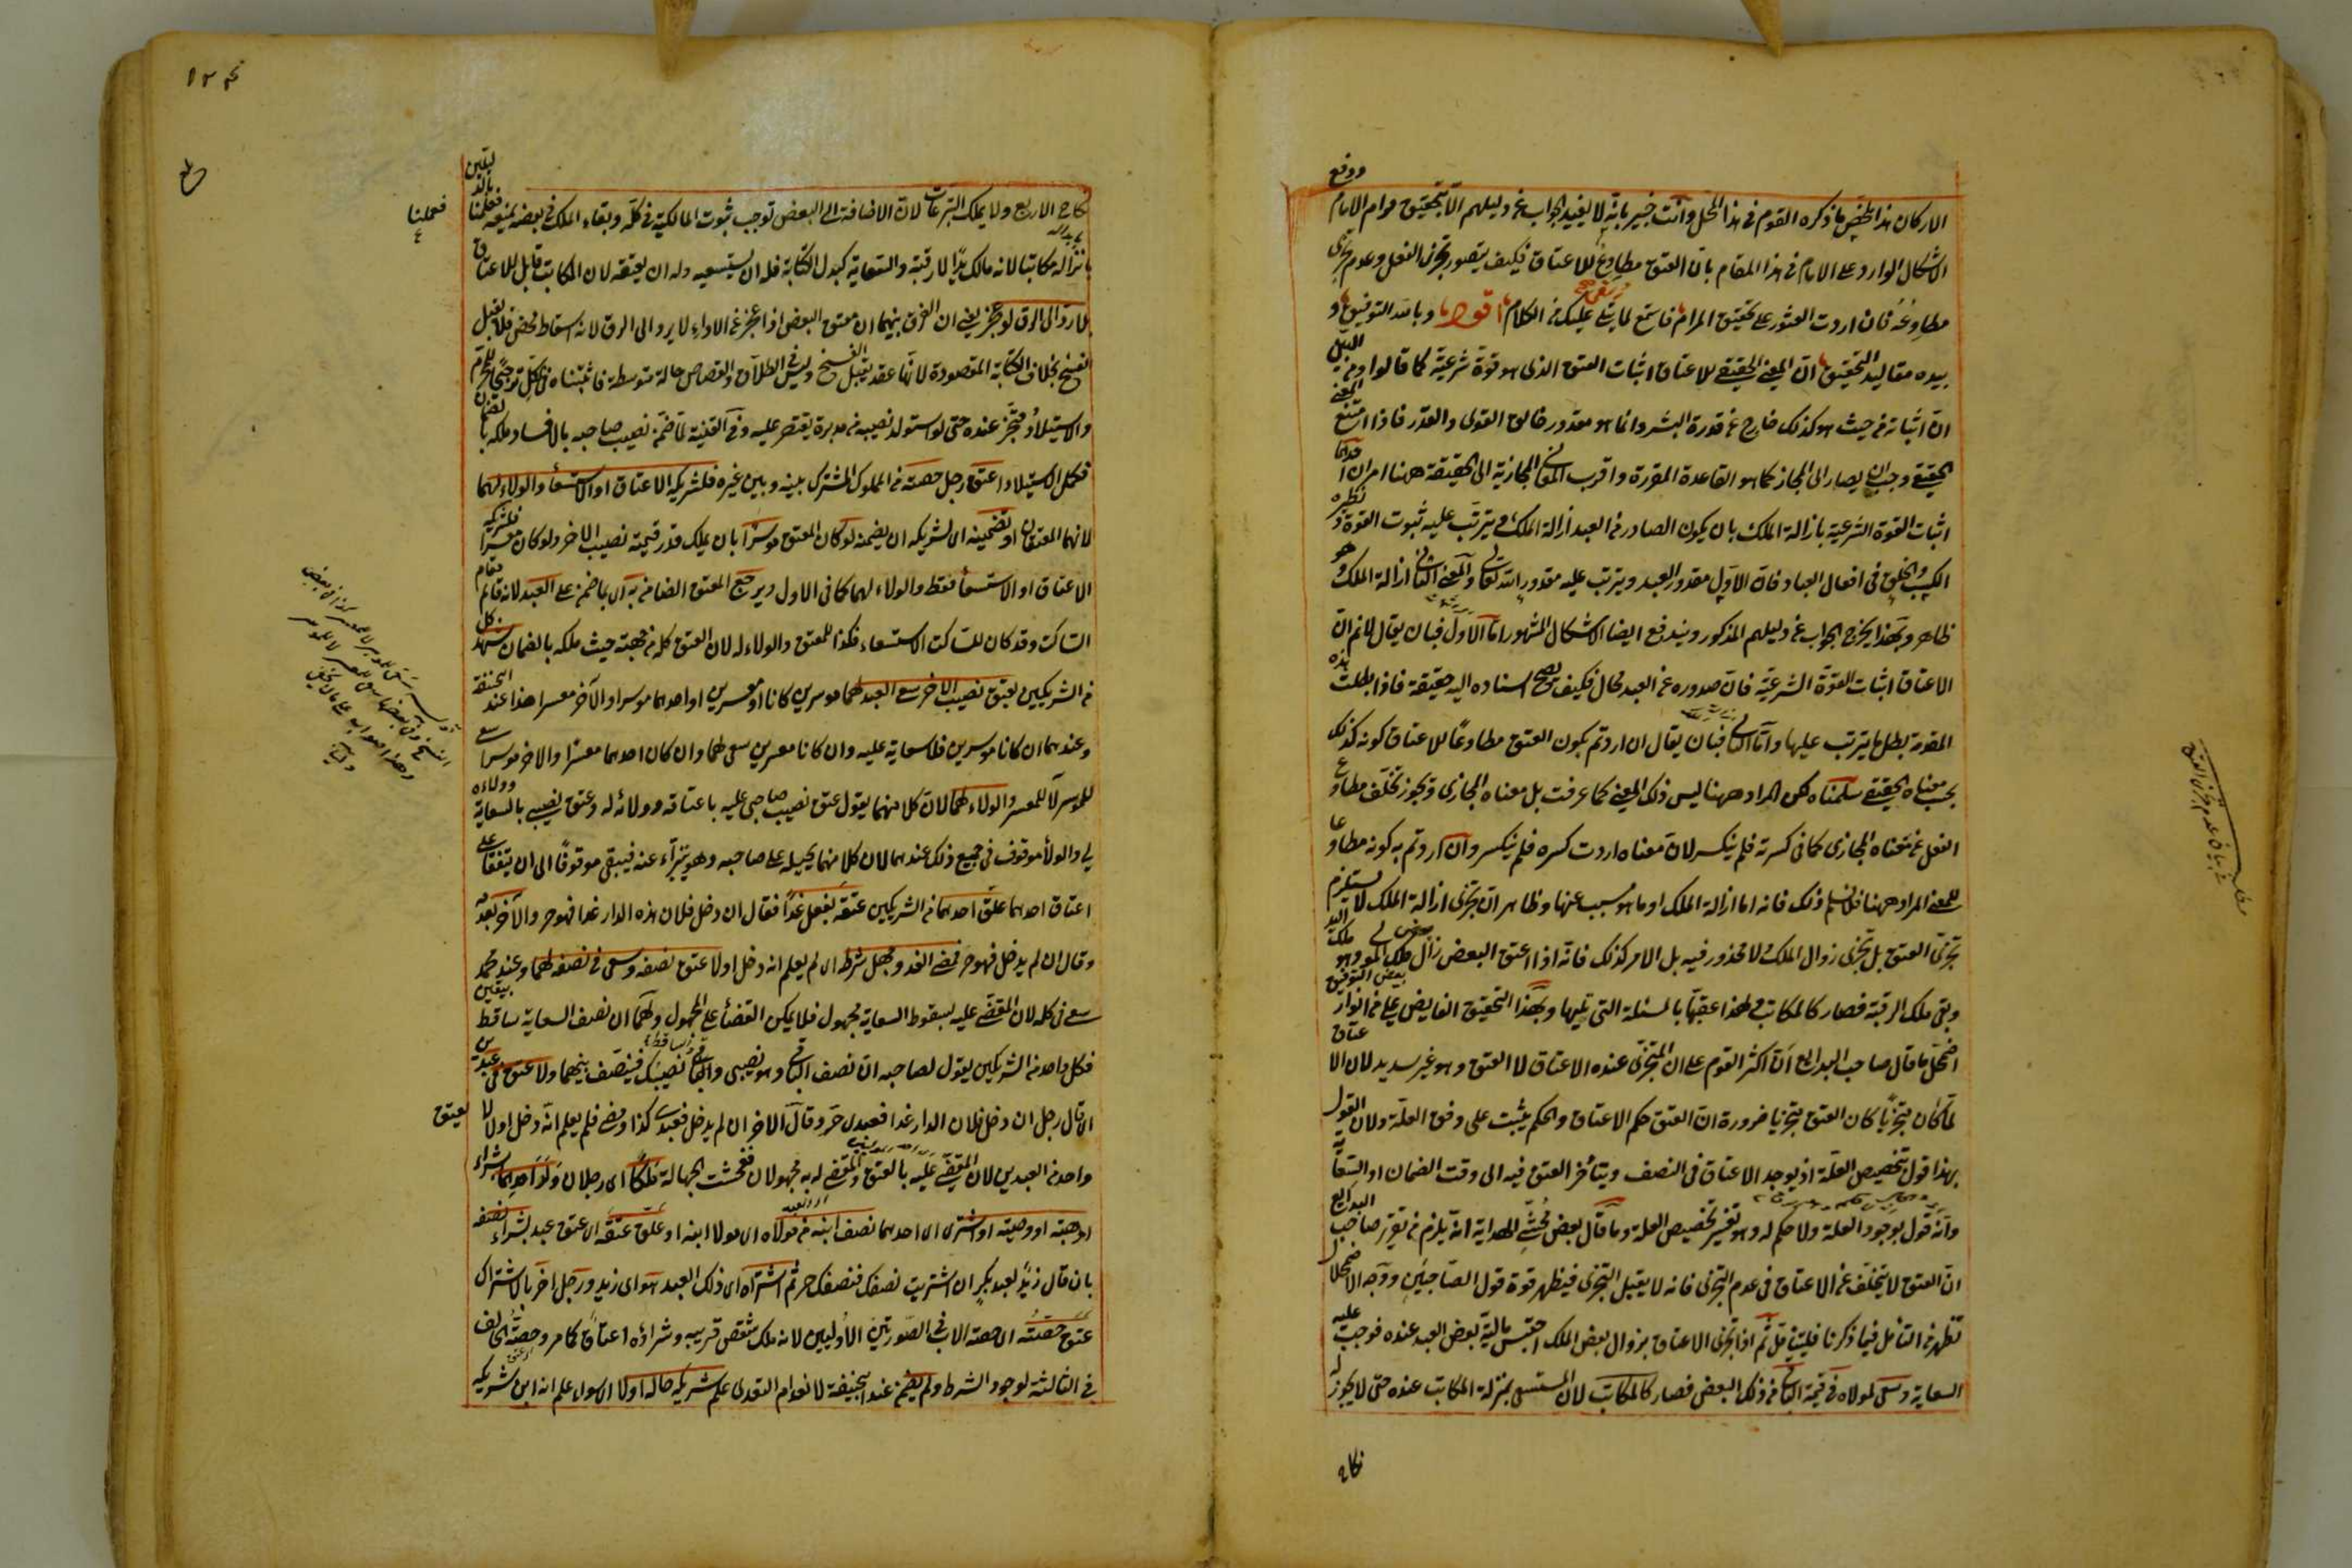 الاركان هذا ملخص ما ذكره القوم في هذا المحل وانت خبير بانه لا يفيد الجواب عن دليلهم الا بتحقيق مرام الامام ودفع
الاشكال الوارد على الامام في هذا المقام بان العتق مطاوع للاعتاق فكيف يتصور تجزى الفعل وعدم تجزى
مطاوعه فان اردت العثور على تحقيق المرام فاستمع لما يتلى عليك من الكلام اقول وبالله التوفيق و
بيده مقاليد التحقيق ان المعنى الحقيقي للاعتاق اثبات العتق الذي هو قوة شرعية كما قالوا ومن البين
ان اثباته من حيث هو كذلك خارج عن قدرة البشر وانما هو مقدور خالق القوى والقدر فاذا امتنع المعنى
الحقيقي وجب ان يصار الى المجاز كما هو القاعدة المقررة واقرب المعاني المجازية الى الحقيقة ههنا امران احدهما
اثبات القوة الشرعية بازالة الملك بان يكون الصادر من العبد ازالة الملك ويترتب عليه ثبوت القوة ونظيره
الكسب والخلق في افعال العباد فان الاول مقدور العبد ويترتب عليه مقدور الله تعالى والمعنى الثاني ازالة الملك وهو
ظاهر وبهذا يخرج الجواب عن دليلهم المذكور ويندفع ايضا الاشكال المشهور اما الاول فبان يقال لا نم ان
الاعتاق اثبات القوة الشرعية فان صدوره عن العبد محال فكيف يصح اسناده اليه حقيقة فاذا بطلت هذه
المقدمة بطل ما يترتب عليها واما الثاني فبان يقال ان اردتم بكون العتق مطاوعا للاعتاق كونه كذلك
بحسب معناه الحقيقي سلمناه لكن المراد ههنا ليس ذلك المعنى كما عرفت بل معناه المجازى ويجوز تخلف مطاوع
الفعل عن معناه المجازى كما في كسرته فلم ينكسر لان معناه اردت كسره فلم ينكسر وان اردتم به كونه مطاوعا
للمعنى المراد ههنا فلا نسلم ذلك فانه اما ازالة الملك او ما هو سبب عنها وظاهر ان تجزى ازالة الملك لا يستلزم
تجزى العتق بل تجزى زوال الملك ولا محذور فيه بل الامر كذلك فانه اذا اعتق البعض زال ملك المولى وهو ملك اليد
وبقى ملك الرقبة فصار كالمكاتب ولهذا عقبها بالمسئلة التي تليها وبهذا التحقيق الفايض على من انوار التوفيق
اضمحل ما قال صاحب البدايع ان اكثر القوم على ان المتجزى عنده الاعتاق لا العتق وهو غير سديد لان الاعتاق
لما كان متجزيا كان العتق متجزيا ضرورة ان العتق حكم الاعتاق والحكم يثبت على وفق العلة ولان القول
بهذا قول بتخصيص العلة اذ يوجد الاعتاق في النصف ويتأخر العتق فيه الى وقت الضمان او السعاية
وانه قول بوجود العلة ولا حكم له وهو تفسير تخصيص العلة وما قال بعض محشى الهداية انه يلزم من تقرير صاحب البدايع
ان العتق لا يتخلف عن الاعتاق في عدم التجزى فانه لا يقبل التجزى فيظهر قوة قول الصاحبين ووجه الاضمحلال
تظهر من التأمل فيما ذكرنا فليتأمل ثم اذا تجزى الاعتاق بزوال بعض الملك احتبس مالية بعض العبد عنده فوجب عليه
السعاية وسعى لمولاه في قيمة الباقي من ذلك البعض فصار كالمكاتب لان المستسعى بمنزلة المكاتب عنده حتى لا يجوز له
نكاح
نكاح الاربع ولا يملك التبرعات لان الاضافة الى البعض توجب ثبوت المالكية في كله وبقاء الملك في بعضه يمنعه فعملنا بالدليلين
بانزاله مكاتبا لانه مالك يدا لا رقبة والسعاية كبدل الكتابة فله ان يستسعيه وله ان يعتقه لان المكاتب قابل للاعتاق
بلا رد الى الرق لو عجز يعني ان الفرق بينهما ان معتق البعض اذا عجز عن الاداء لا يرد الى الرق لانه اسقاط محض فلا يقبل
الفسخ بخلاف الكتابة المقصودة لانها عقد يقبل الفسخ وليس في الطلاق والقصاص حالة متوسطة فاثبتناه في الكل ترجيحا للمحرم
والاستيلاد متجز عنده حتى لو استولد نصيبه من مدبرة يقتصر عليه وفي القنية لما ضمن نصيب صاحبه بالافساد ملكه بالضمان
فكمل الاستيلاد اعتق رجل حصته من المملوك المشترك بينه وبين غيره فلشريكه الاعتاق او الاستسعا والولاء لهما
لانهما المعتقان او تضمينه اي لشريكه ان يضمنه لو كان المعتق موسرا بان يملك قدر قيمة نصيب الاخر ولو كان معسرا فلشريكه
الاعتاق او الاستسعا فقط والولاء لهما كما في الاول ويرجع المعتق الضامن به اي بما ضمن على العبد لانه قائم مقام
الساكت وقد كان للساكت الاستسعاء فكذا للمعتق والولاء له لان العتق كله من جهته حيث ملكه بالضمان شهد كل
من الشريكين بعتق نصيب الآخر سعى العبد لهما موسرين كانا او معسرين او احدهما موسرا والآخر معسرا هذا عند ابي حنيفة
وعندهما ان كانا موسرين فلا سعاية عليه وان كانا معسرين سعى لهما وان كان احدهما معسرا والاخر موسرا سعى
للموسر لا للمعسر والولاء لهما لان كلا منهما يقول عتق نصيب صاحبي عليه باعتاقه وولائه له وعتق نصيبي بالسعاية وولاءه
لي والولاء موقوف في جميع ذلك عندهما لان كلا منهما يحيله على صاحبه وهو يتبرأ عنه فيبقى موقوفا الى ان يتفقا على
اعتاق احدهما علق احدهما من الشريكين عتقه بفعل غدا فقال ان دخل فلان هذه الدار غدا فهو حر والآخر بعدمه
وقال ان لم يدخل فهو حر فمضى الغد وجهل شرطه اي لم يعلم انه دخل اولا عتق نصفه وسعى في نصفه لهما وعند محمد
سعى في كله لان المقضى عليه بسقوط السعاية مجهول فلا يمكن القضأ على المجهول ولهما ان نصف السعاية ساقط بيقين
فكل واحد من الشريكين يقول لصاحبه ان نصف الباقي هو نصيبي والساقط نصيبك فينصف بينهما ولا عتق في عبدين
اي قال رجل ان دخل فلان الدار غدا فعبدى حر وقال الاخر ان لم يدخل فعبدى كذا ومضى فلم يعلم انه دخل اولا لا يعتق
واحد من العبدين لان المقضى عليه بالعتق والمقضى له به مجهولان ففحشت الجهالة ملكا اى رجلان ولد احدهما بشراء
او هبة او وصية او اشترى اى احدهما نصف ابنه من مولاه اى مولا ابنه او علق عتقه اى عتق عبد بشراء نصفه
بان قال زيد لعبد بكر ان اشتريت نصفك فنصفك حر ثم اشتراه اى ذلك العبد هو اى زيد ورجل اخر بالاشتراك
عتق حصته اى حصة الاب في الصورتين الاوليين لانه ملك شقص قريبه وشراؤه اعتاق كما مر وحصة الحالف
في الثالثة لوجود الشرط ولم يضمن عند ابي حنيفة لانعدام التعدى علم شريكه حاله اولا اى سواء علم انه ابن شريكه